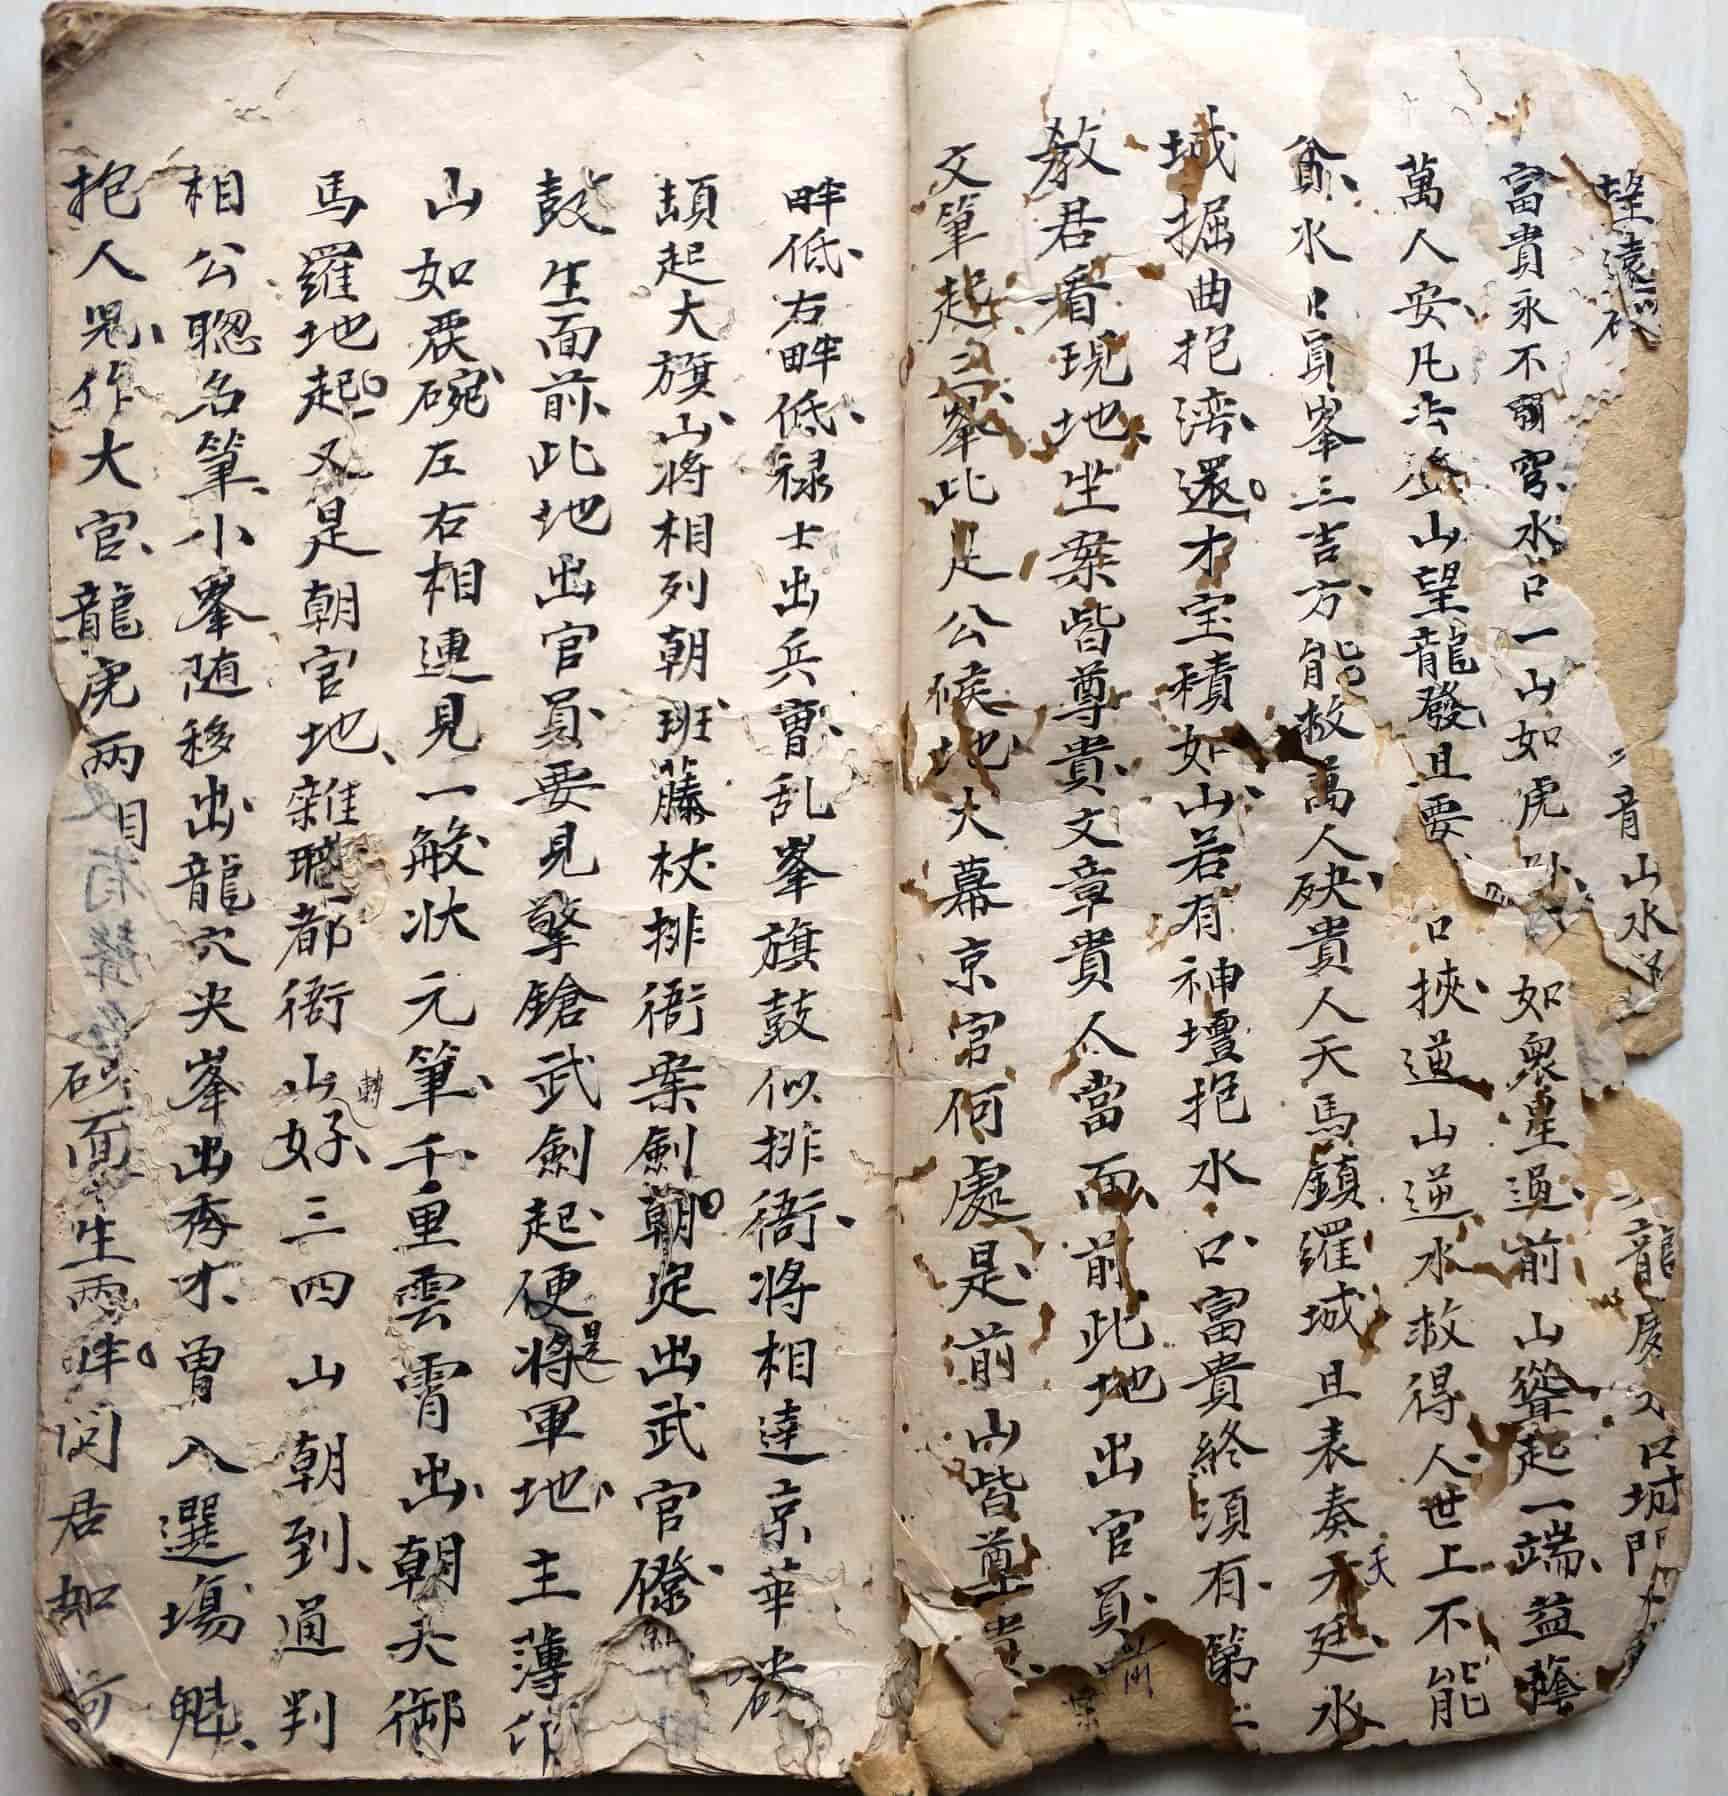 望遠砂 音山水 龍 口城門
富貴永不窮水口一山如虎 如衆星過前山聳起一端益蔭
萬人安凡去登山望龍發且要 口挾逆山逆水救得人世上不能
貧水口員峯三吉方能救萬人砄貴人天馬鎮羅城且表奏天廷水
城掘曲抱湾還才宝積如山若有神壇抱水口富貴終須有第二
教君看現地坐案皆尊貴文章貴人當面前此地出官員
文筆起三峯此是公候地大幕京官何處是前山皆尊貴
畔低右畔低禄士出兵曺乱峯旗鼓似排衙將相達京華
頡起大旗山將相列朝班藤杖排衙案劍朝定出武官僚
鼓生面前此地出官員要見擎鎗武劍起便是將軍地主薄作
山如覆碗左右相連見一般状元筆千重雲霄出朝天御
馬羅地起又是朝官地雜職都衙山轉好三四山朝到通判
相公聰名筆小峯随移出龍穴尖峯出秀才曽入選塲魁
抱人鬼作大官龍虎两目 砂面生兩畔問君如何